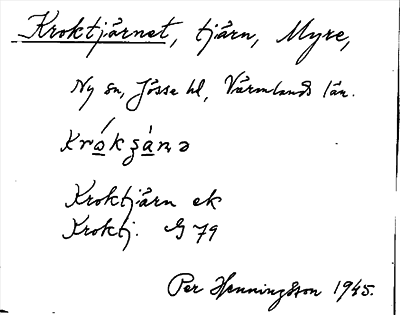 Kroktjärnet, tjärn, Myre,
Ny sn, Jösse hd, Värmlands län.
Kroktjärn ek
Kroktj. G 79
Per Henningsson 1945.